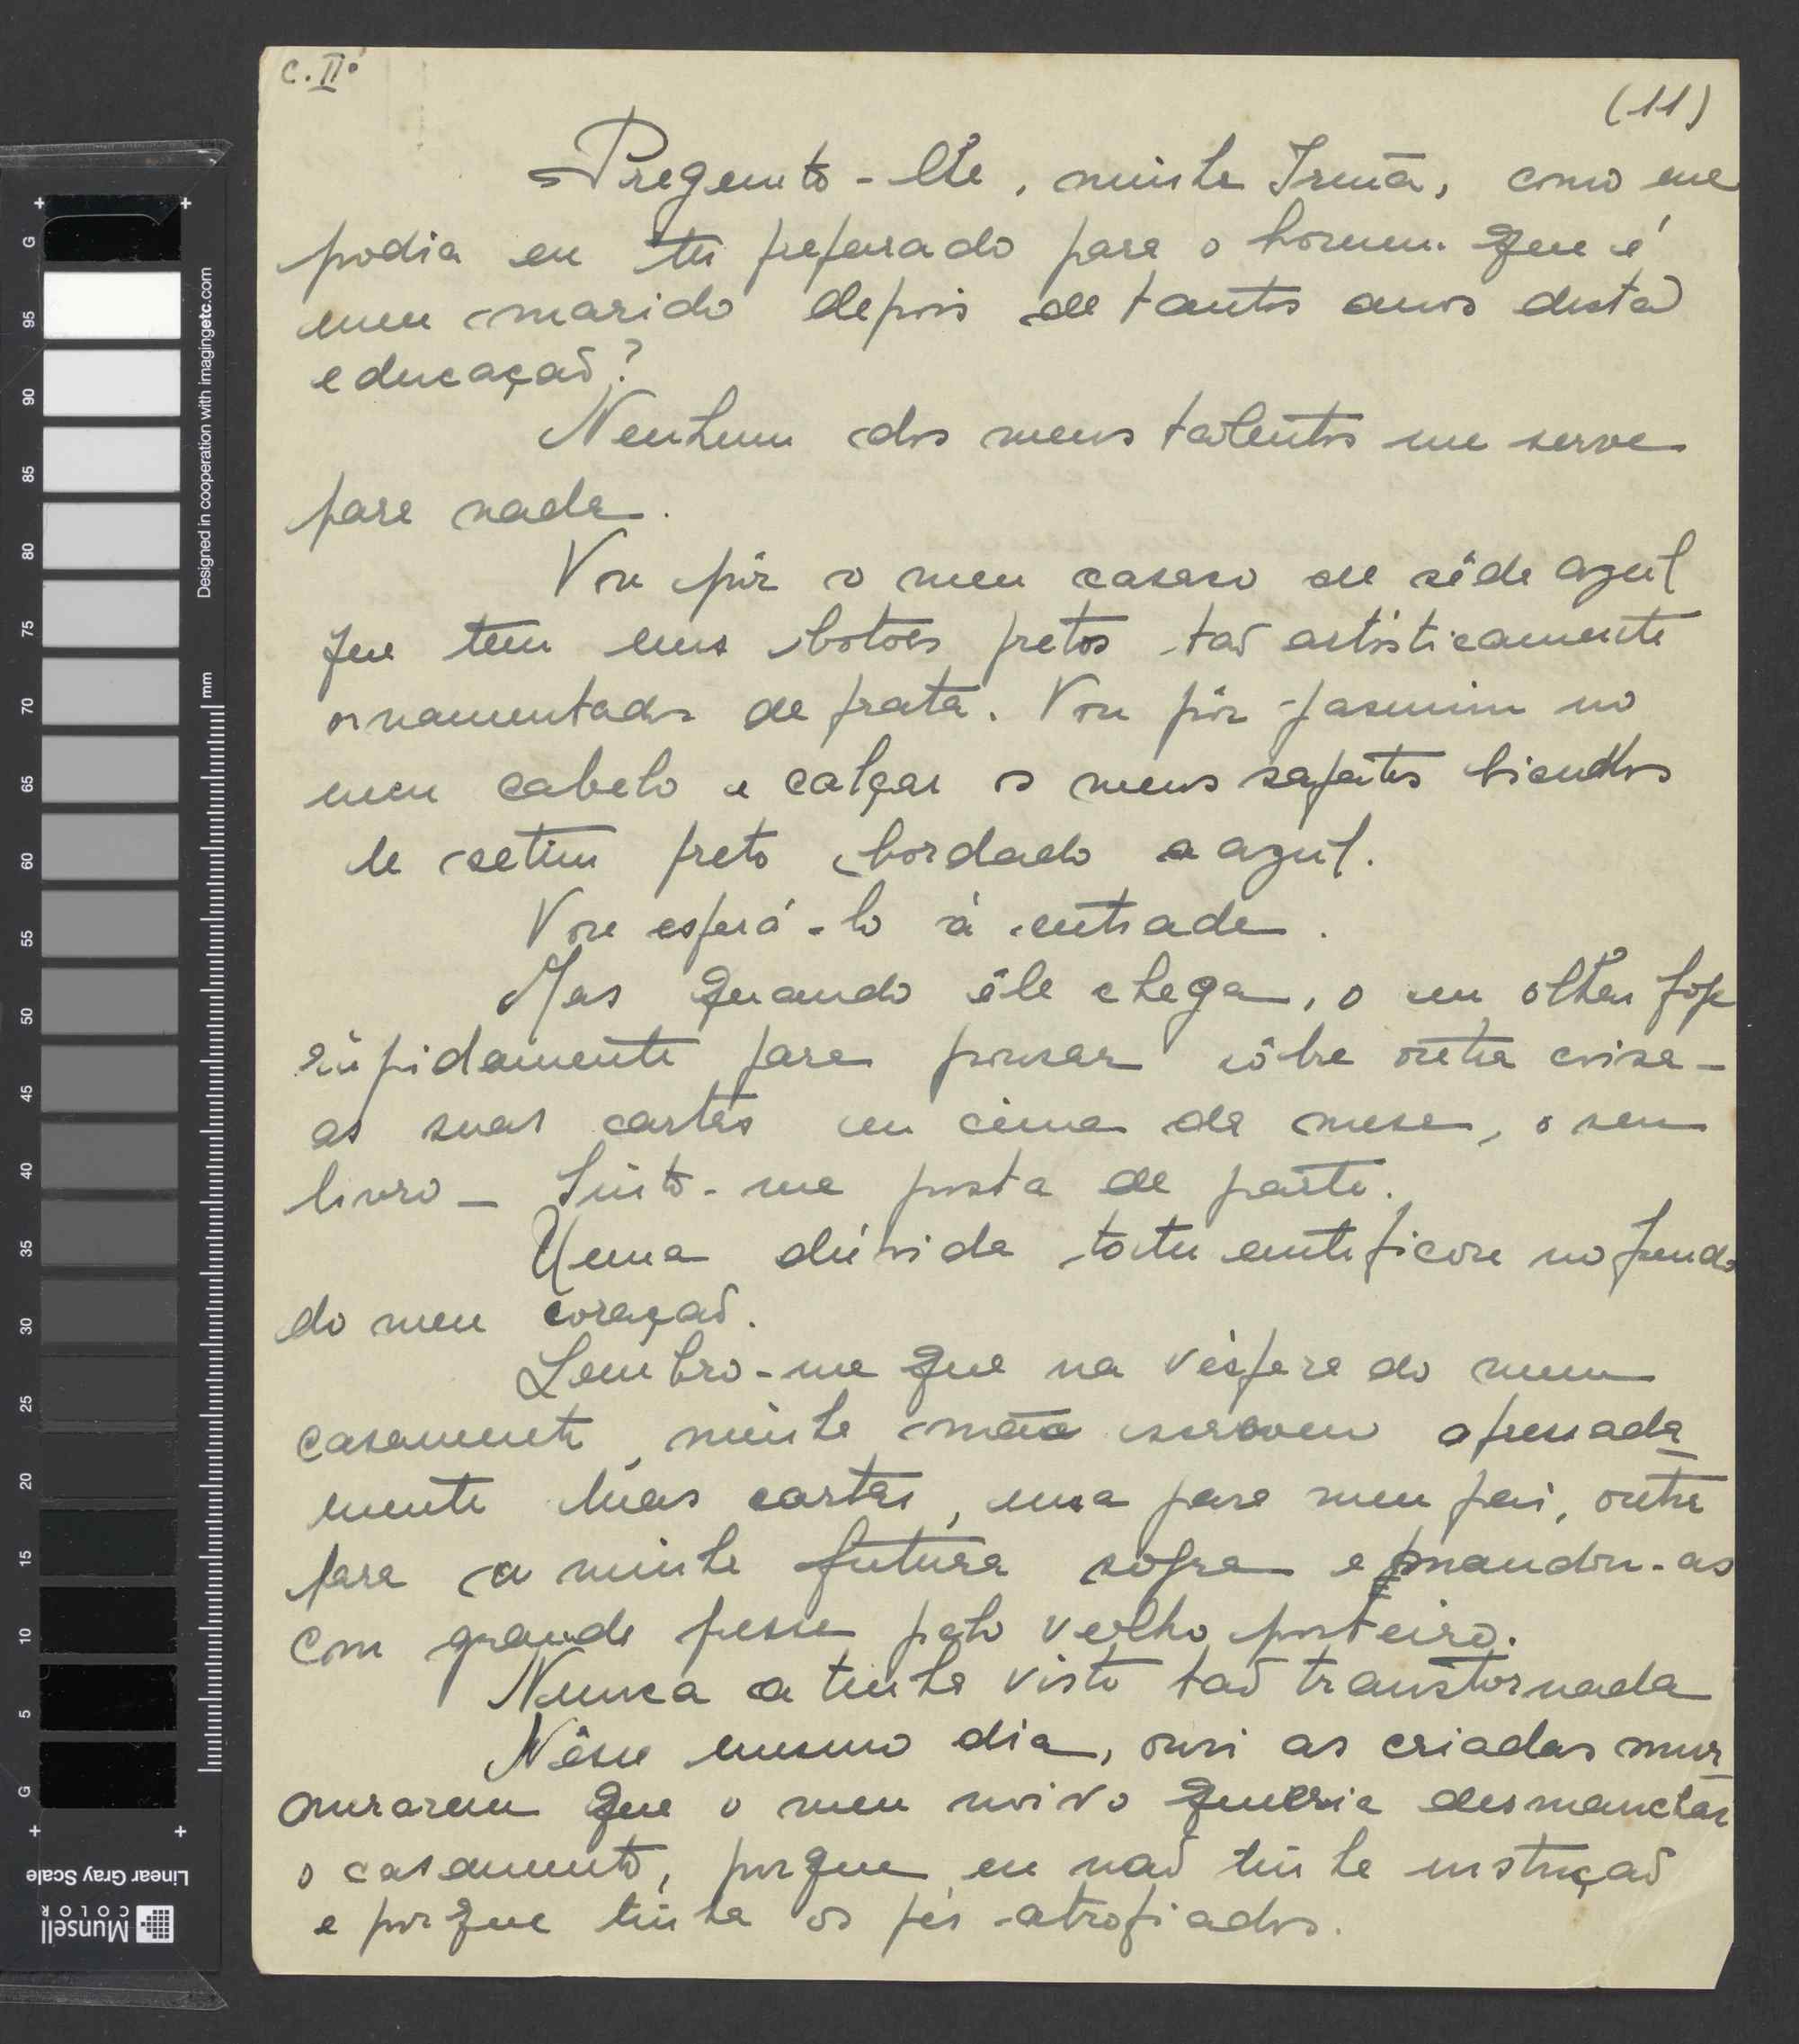 c. IIº
(11)
Pregunto-lhe, minha Irmã, como me
podia eu ter preparado para o homem que é
meu marido depois de tantos anos desta
educação?
Nenhum dos meus talentos me serve
para nada.
Vou pôr o meu casaco de sêda azul
que tem uns botões pretos tão artisticamente
ornamentados de prata. Vou pôr jasmim no
meu cabelo e calçar os meus sapatos bicudos
de setim preto bordado a azul.
Vou esperá-lo à entrada.
Mas quando êle chega, o seu olhar foge
rápidamente para pousar sôbre outra coisa -
as suas cartas em cima da mesa, o seu
livro - Sinto-me posta de parte.
Uma dúvida tortura-me no fundo
do meu coração.
Lembro-me que na véspera do meu
casamento, minha mãe escreveu apressada
mente duas cartas, uma para meu pai, outra
para a minha futura sogra e mandou-as
com grande pressa pelo velho porteiro.
Nunca a tinha visto tão transtornada
Nêsse mesmo dia, ouvi as criadas mur
murarem que o meu noivo queria desmanchar
o casamento, porque eu não tinha instrução
e porque tinha os pés atrofiados.
95
90
85
80
75
70
65
60
55
50
45
40
35
30
25
20
15
10
5
G
G
mm
Designed in cooperation with imagingetc.com
Linear Gray Scale
Munsell
COLOR